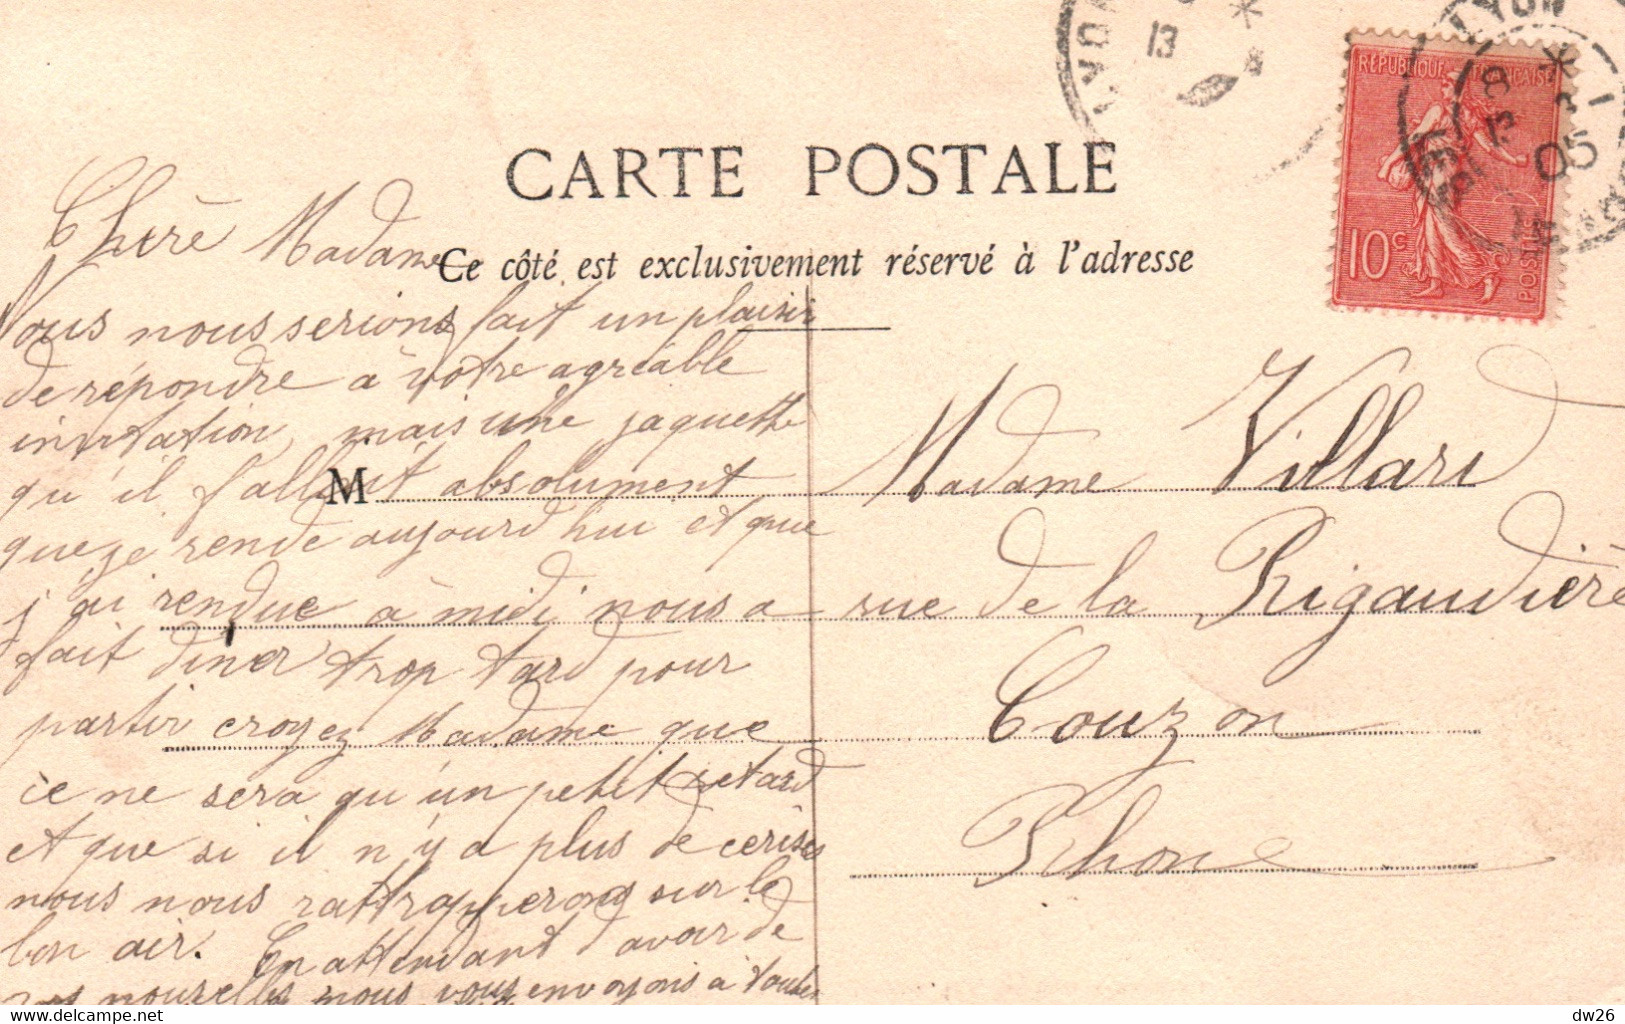 LYON
13
LYON
05
RÉPUBLIQUE FRANÇAISE
10c
POSTES
CARTE POSTALE
Ce côté est exclusivement réservé à l'adresse
Chère Madame
Nous nous serions fait un plaisir
de répondre à vôtre agréable
invitation, mais une jaquette
qu'il fallait absolument
que je rende aujourd'hui et que
j'ai rendue à midi nous a
fait diner trop tard pour
partir croyez Madame que
ce ne sera qu'un petit retard
et que si il n'y a plus de cerises
nous nous rattrapperons sur le
bon air. En attendant d'avoir de
vos nouvelles nous vous envoyons à toutes
M
Madame Villard
rue de la Rigaudière
Couzon
Rhone
delcampe.net
dw26